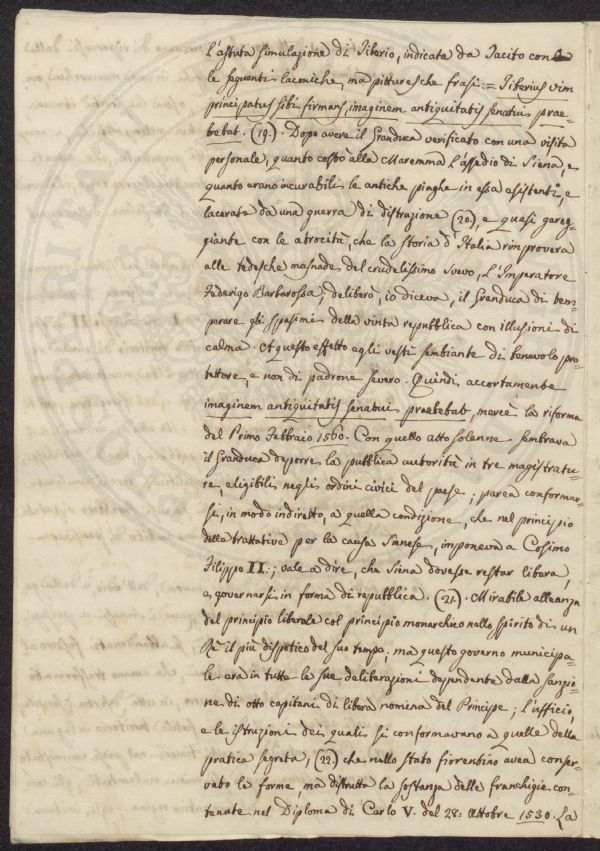 l'astuta simulazione di Tiberio, indicata da Tacito con
le seguenti laconiche, ma pittoresche frasi := Tiberius vim
principatus sibi firmans, imaginem antiquitatis senatui prae=
bebat. (19.). Dopo avere il Granduca verificato con una visita
personale, quanto costò alla Maremma l'assedio di Siena, e
quanto erano incurabili le antiche piaghe in essa esistenti, e
lacerate da una guerra di distruzione (20.), e quasi gareg=
giante con le atrocità, che la storia d'Italia rimprovera
alle tedesche masnade del crudelissimo Svevo, l'Imperatore
Federigo Barbarossa; deliberò, io diceva, il Granduca di tem=
perare gli spasimi della vinta repubblica con illusioni di
calma. A questo effetto egli vestì sembiante di benevolo pro=
tettore, e non di padrone severo. Quindi accortamente
imaginem antiquitatis senatui praebebat, mercè la riforma
del Primo Febbraio 1560. Con quello atto solenne sembrava
il Granduca deporre la pubblica autorità in tre magistratu=
re, eligibili negli ordini civici del paese; parea conformar=
si, in modo indiretto, a quella condizione, che nel principio
delle trattative per la causa Sienese, imponeva a Cosimo
Filippo II.; vale a dire, che Siena dovesse restar libera,
e governarsi in forma di repubblica. (21.). Mirabile alleanza
del principio liberale col principio monarchico nello spirito di un
Rè il più dispotico del suo tempo; ma questo governo municipa=
le era in tutte le sue deliberazioni dependente dalla sanzio=
ne di otto capitani di libera nomina del Principe; l'ufficio,
e le istruzioni dei quali si conformavano a quelle della
pratica segreta, (22.) che nello stato fiorentino avea conser=
vato le forme, ma distrutta la sostanza delle franchigie con=
tenute nel Diploma di Carlo V. del 28: Ottobre 1530. La